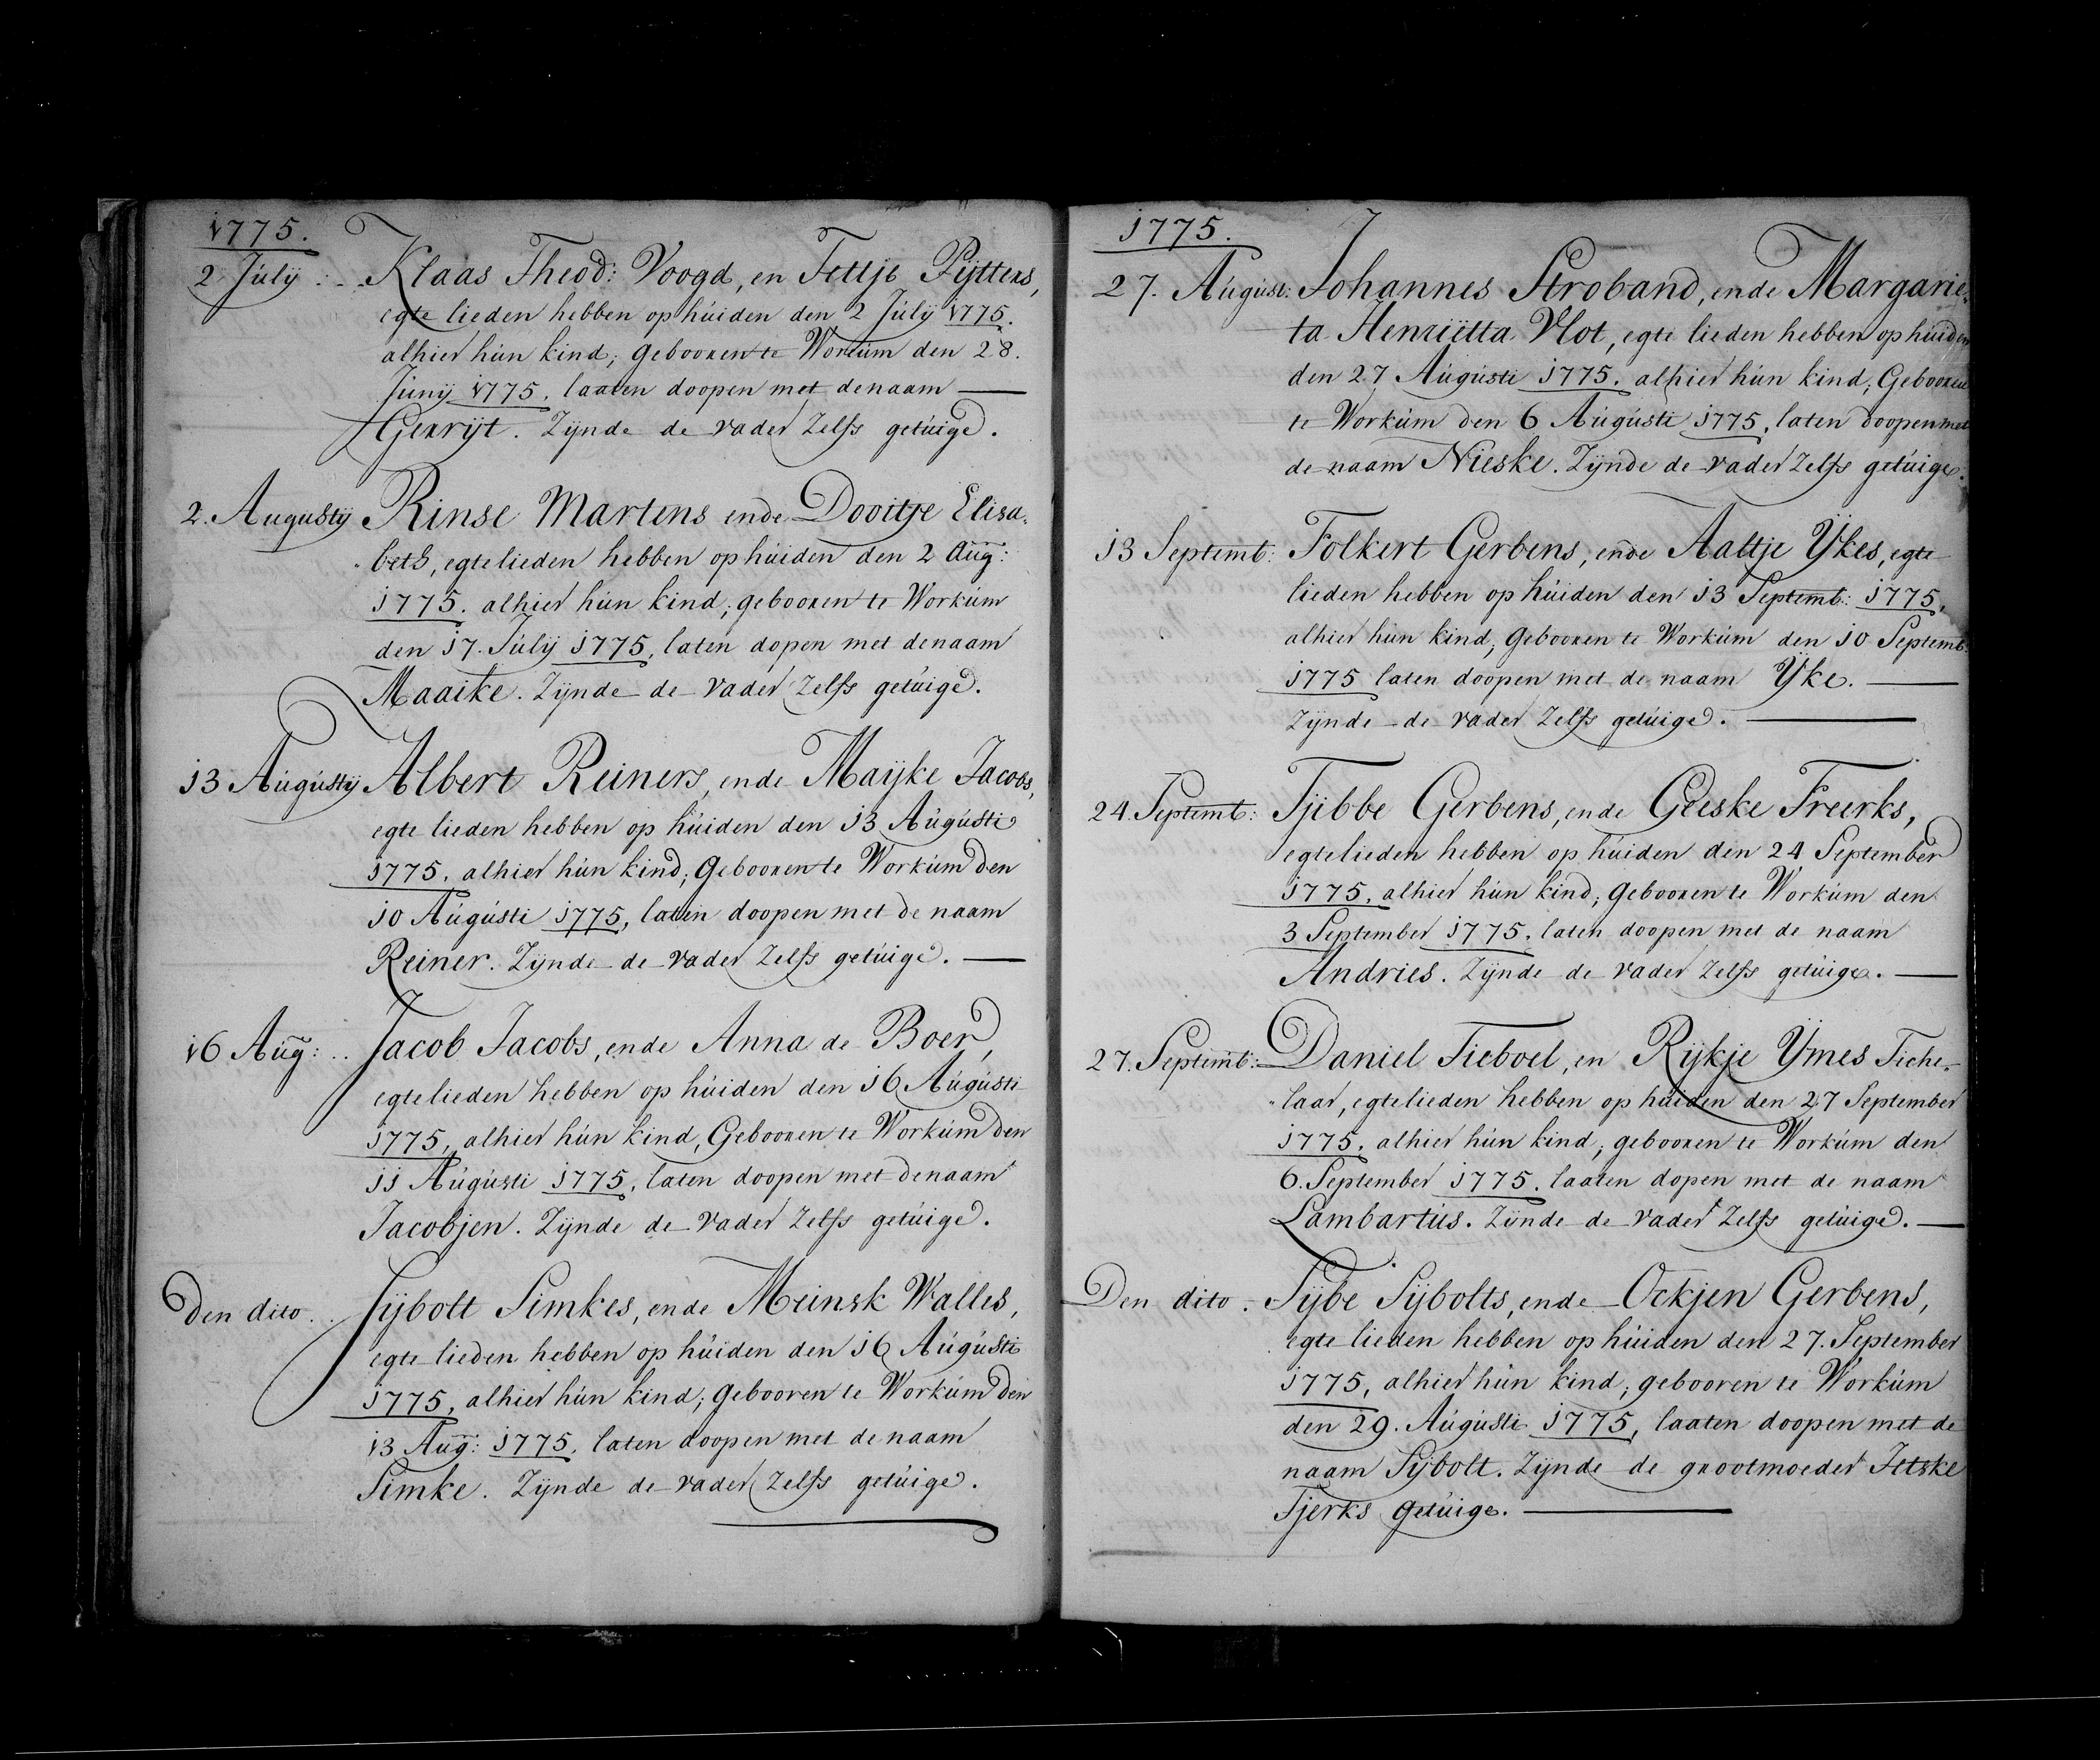 1775.
2 Júlij : .. Klaas Theod: Voogd, en Fettje Pijtters,
egte lieden hebben op húiden den 2 Júlij 1775.
alhier hún kind, gebooren te Workúm den 28.
Junij 1775. laaten doopen met de naam
Gerrijt. Zijnde de vader Zelfs getúige.
2. Augustij Rinse Martens ende Dooitje Elisa-
beth, egtelieden hebben op húiden den 2 Aug:
1775. alhier hún kind, gebooren te Workúm
den 17. Júlij 1775, laten dopen met de naam
Maaike. Zijnde de vader Zelfs getúige.
13 Aúgústij Albert Reiners, ende Maijke Jacobs,
egte lieden hebben op húiden den 13 Aúgústi
1775. alhier hún kind, gebooren te Workúm den
10 Aúgústi 1775, laten doopen met de naam
Reiner. Zijnde de vader Zelfs getúige.
16 Aug: .. Jacob Jacobs, ende Anna de Boer,
egtelieden hebben op húiden den 16 Aúgústi
1775, alhier hún kind, Gebooren te Workúm den
11 Aúgústi 1775, laten doopen met de naam
Jacobjen. Zijnde de vader Zelfs getúige.
Den dito .. Sijbolt Simkes, ende Meinsk Walles,
egte lieden hebben op húiden den 16 Aúgústi
1775, alhier hún kind, gebooren te Workúm den
13 Aug: 1775, laten doopen met de naam
Simke. Zijnde de vader Zelfs getúige.
1775.
27. Aúgúst: Johannes Stroband, ende Margarie-
ta Henriëtta Vlot, egte lieden hebben op húiden
den 27 Aúgústi 1775. alhier hún kind, Gebooren
te Workúm den 6 Aúgústi 1775, laten doopen met
de naam Nieske. Zijnde de vader Zelfs getúige.
13 Septemb: Folkert Gerbens, ende Aaltje Ykes, egte
lieden hebben op húiden den 13 Septemb: 1775,
alhier hún kind, gebooren te Workúm den 10 Septemb:
1775 laten doopen met de naam Yke.
Zijnde de vader Zelfs getúige.
24. Septemb: Tjibbe Gerbens, ende Geeske Freerks,
egtelieden hebben op húiden den 24 September
1775, alhier hún kind, gebooren te Workúm den
3 September 1775. laten doopen met de naam
Andries. Zijnde de vader Zelfs getúige.
27. Septemb: Daniel Tieboel, en Rijkje Ymes Tiche-
laar, egtelieden hebben op húiden den 27 September
1775. alhier hún kind, gebooren te Workúm den
6. September 1775. laaten dopen met de naam
Lambartús. Zijnde de vader Zelfs getúige.
Den dito . Sijbe Sijbolts, ende Ockjen Gerbens,
egte lieden hebben op húiden den 27. September
1775, alhier hún kind, gebooren te Workúm
den 29. Aúgústi 1775, laaten doopen met de
naam Sijbolt. Zijnde de grootmoeder Jetske
Tjerks getúige.